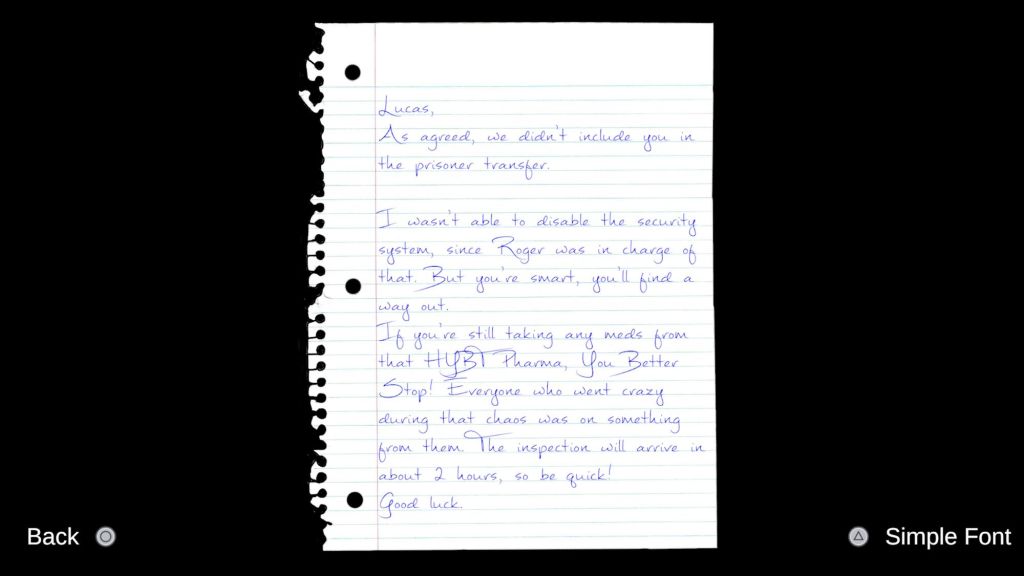 Lucas,
As agreed, we didn't include you in
the prisoner transfer.
I wasn't able to disable the security
system, since Roger was in charge of
that. But you're smart, you'll find a
way out.
If you're still taking any meds from
that HYBT Pharma, You Better
Stop! Everyone who went crazy
during that chaos was on something
from them. The inspection will arrive in
about 2 hours, so be quick!
Good luck.
Back
Simple Font